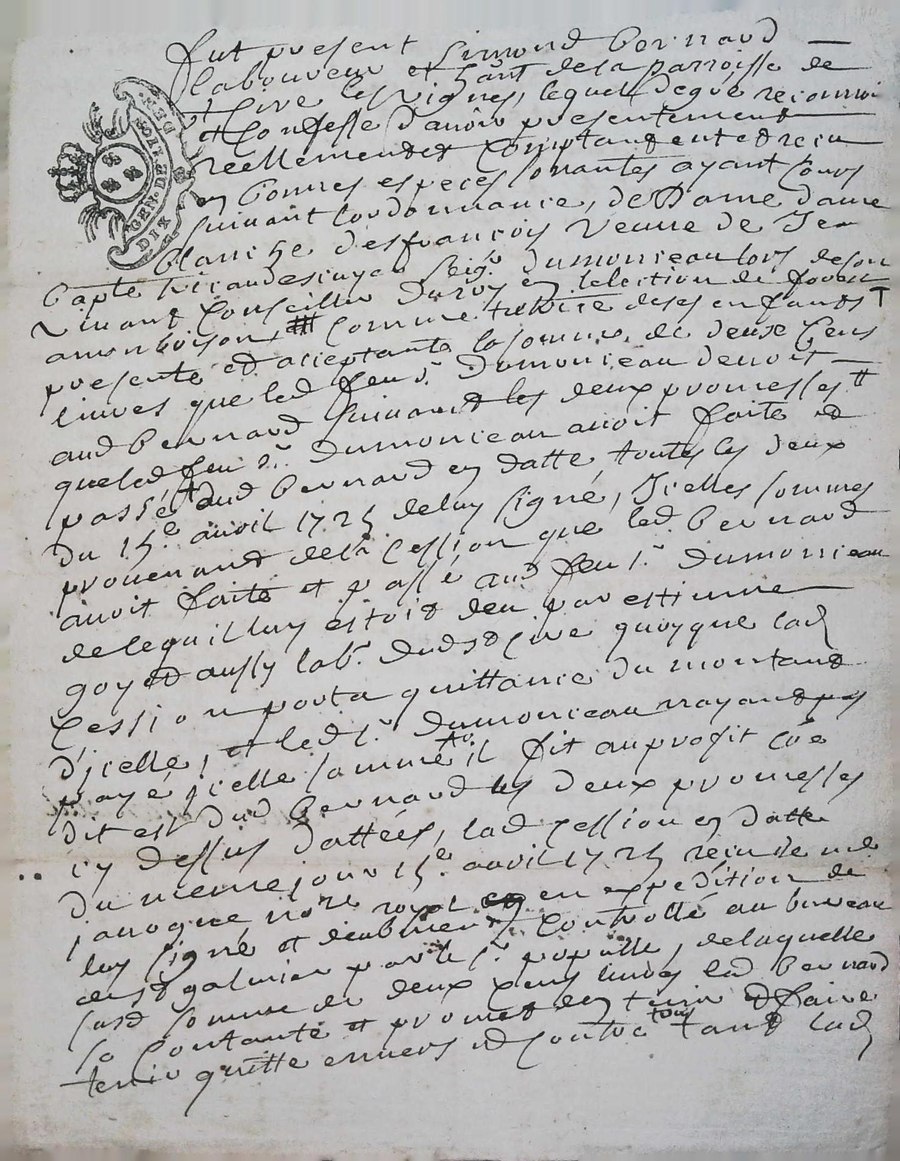 GEN. DE RION
DIX DEN.
fut present Simond bernard
laboureur et hant de la parroisse de
st Cire les vignes, lequel de gré reconnoi
et Confesse d'avoir presentement
reellement et Comptant eut et receu
en bonnes especes sonantes ayant Cours
suivant lordonnance, de Dame dame
blanche desfrançois veuve de Jea
bapte escuyer seigr. dumonceau lors de son
vivant Conseiller du roy en lelection de forest
a monbrison, comme tutrice de ses enfants
presente et acceptante la somme de deux Cens
livres que led feu sr. Dumonceau devoit
aud bernard suivant les deux promesses
que led feu sr. dumonceau avoit faite et
passé aud bernard en datte toutes les deux
du 15e avril 1725 de luy signé, Jcelles sommes
provenant de la Cession que led. bernard
avoit faite et passé aud feu sr. dumonceau
de lequil luy estoit deu par estienne
goyet aussy labr. dud st Cire quoyque lad
Cession porta quittance du montant
d'jcelle, et led sr. dumonceau nayant pas
payé jcelle somme il fit au profit Coe
dit est dud bernard les deux promesses
cy dessus dattées, lad Cession en datte
du meme jour 15e. avril 1725 receu de me
jaroque nore royal en expedition de
luy signé et Controllé au bureau
de st galmier par le sr. populle, de laquelle
susd somme de deux Cens livres led bernard
se Contante et promet den tenir et faire
tenir quitte envers et Contre tous tant lad